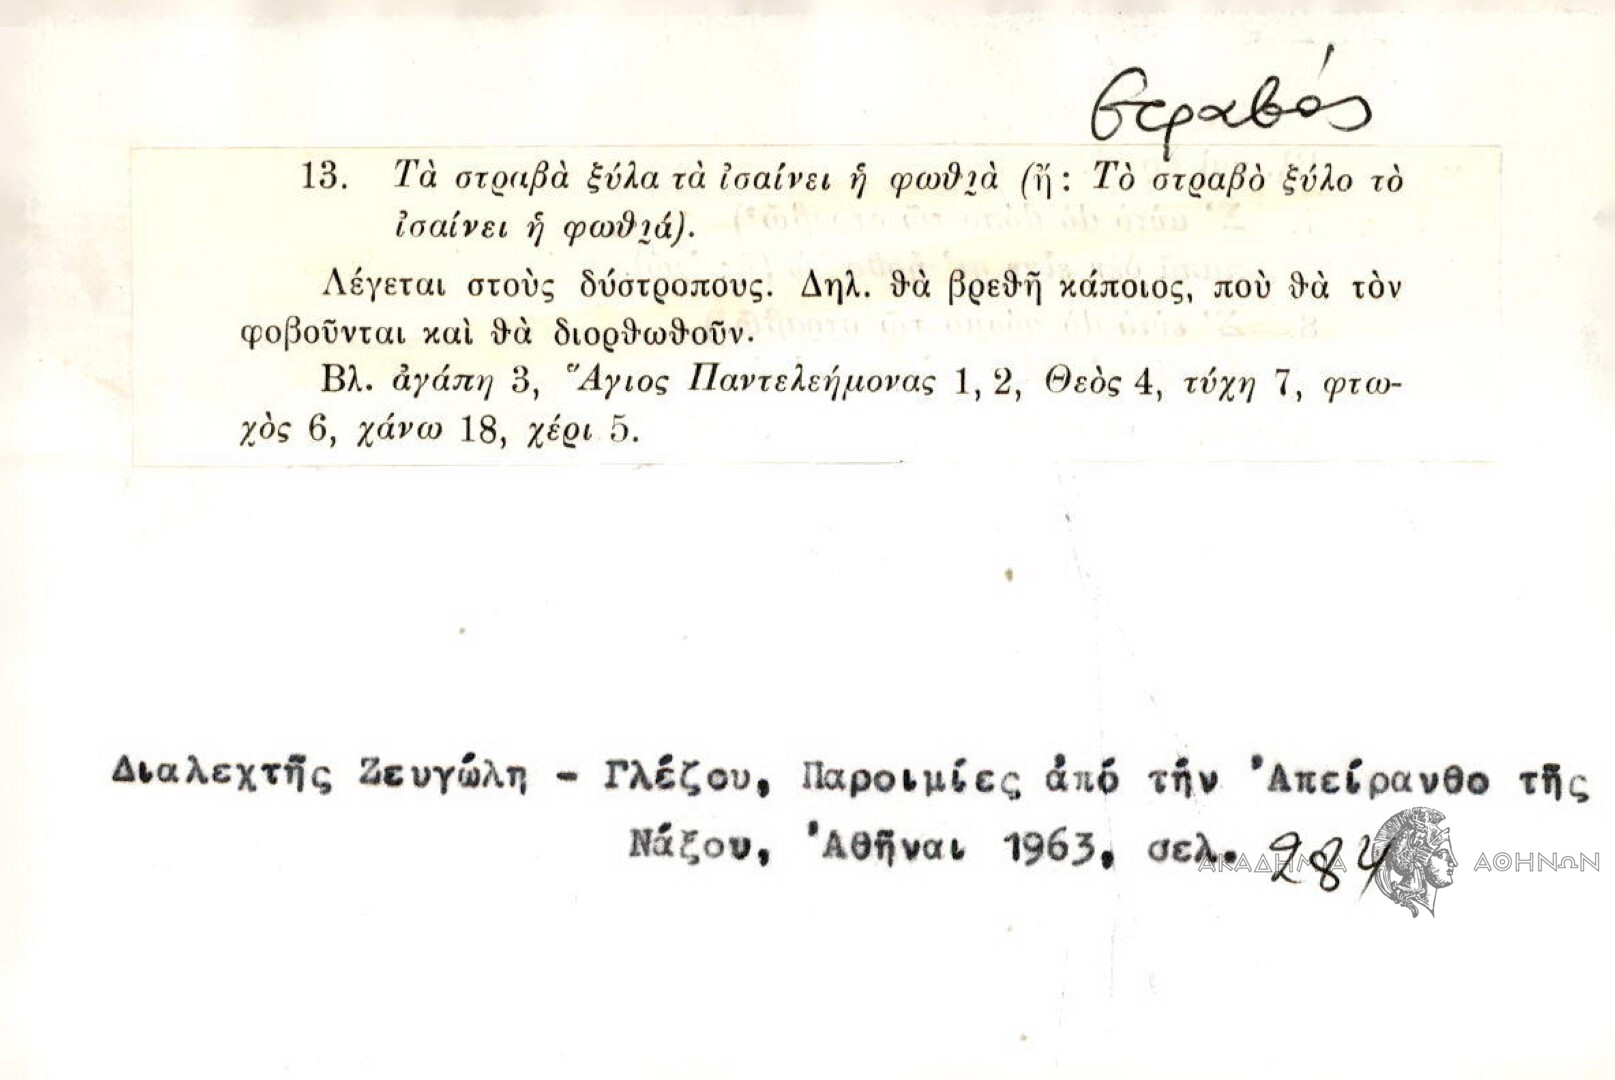 στραβός
13. Τὰ στραβὰ ξύλα τὰ ἰσαίνει ἡ φωθι̯ὰ (ἤ: Τὸ στραβὸ ξύλο τὸ
ἰσαίνει ἡ φωθι̯ά).
Λέγεται στοὺς δύστροπους. Δηλ. θὰ βρεθῆ κάποιος, ποὺ θὰ τὸν
φοβοῦνται καὶ θὰ διορθωθοῦν.
Βλ. ἀγάπη 3, Ἅγιος Παντελεήμονας 1, 2, Θεὸς 4, τύχη 7, φτω-
χὸς 6, χάνω 18, χέρι 5.
Διαλεχτῆς Ζευγώλη - Γλέζου, Παροιμίες ἀπό τήν Ἀπείρανθο τῆς
Νάξου, Ἀθῆναι 1963, σελ. 284
ΑΚΑΔΗΜΙΑ ΑΘΗΝΩΝ